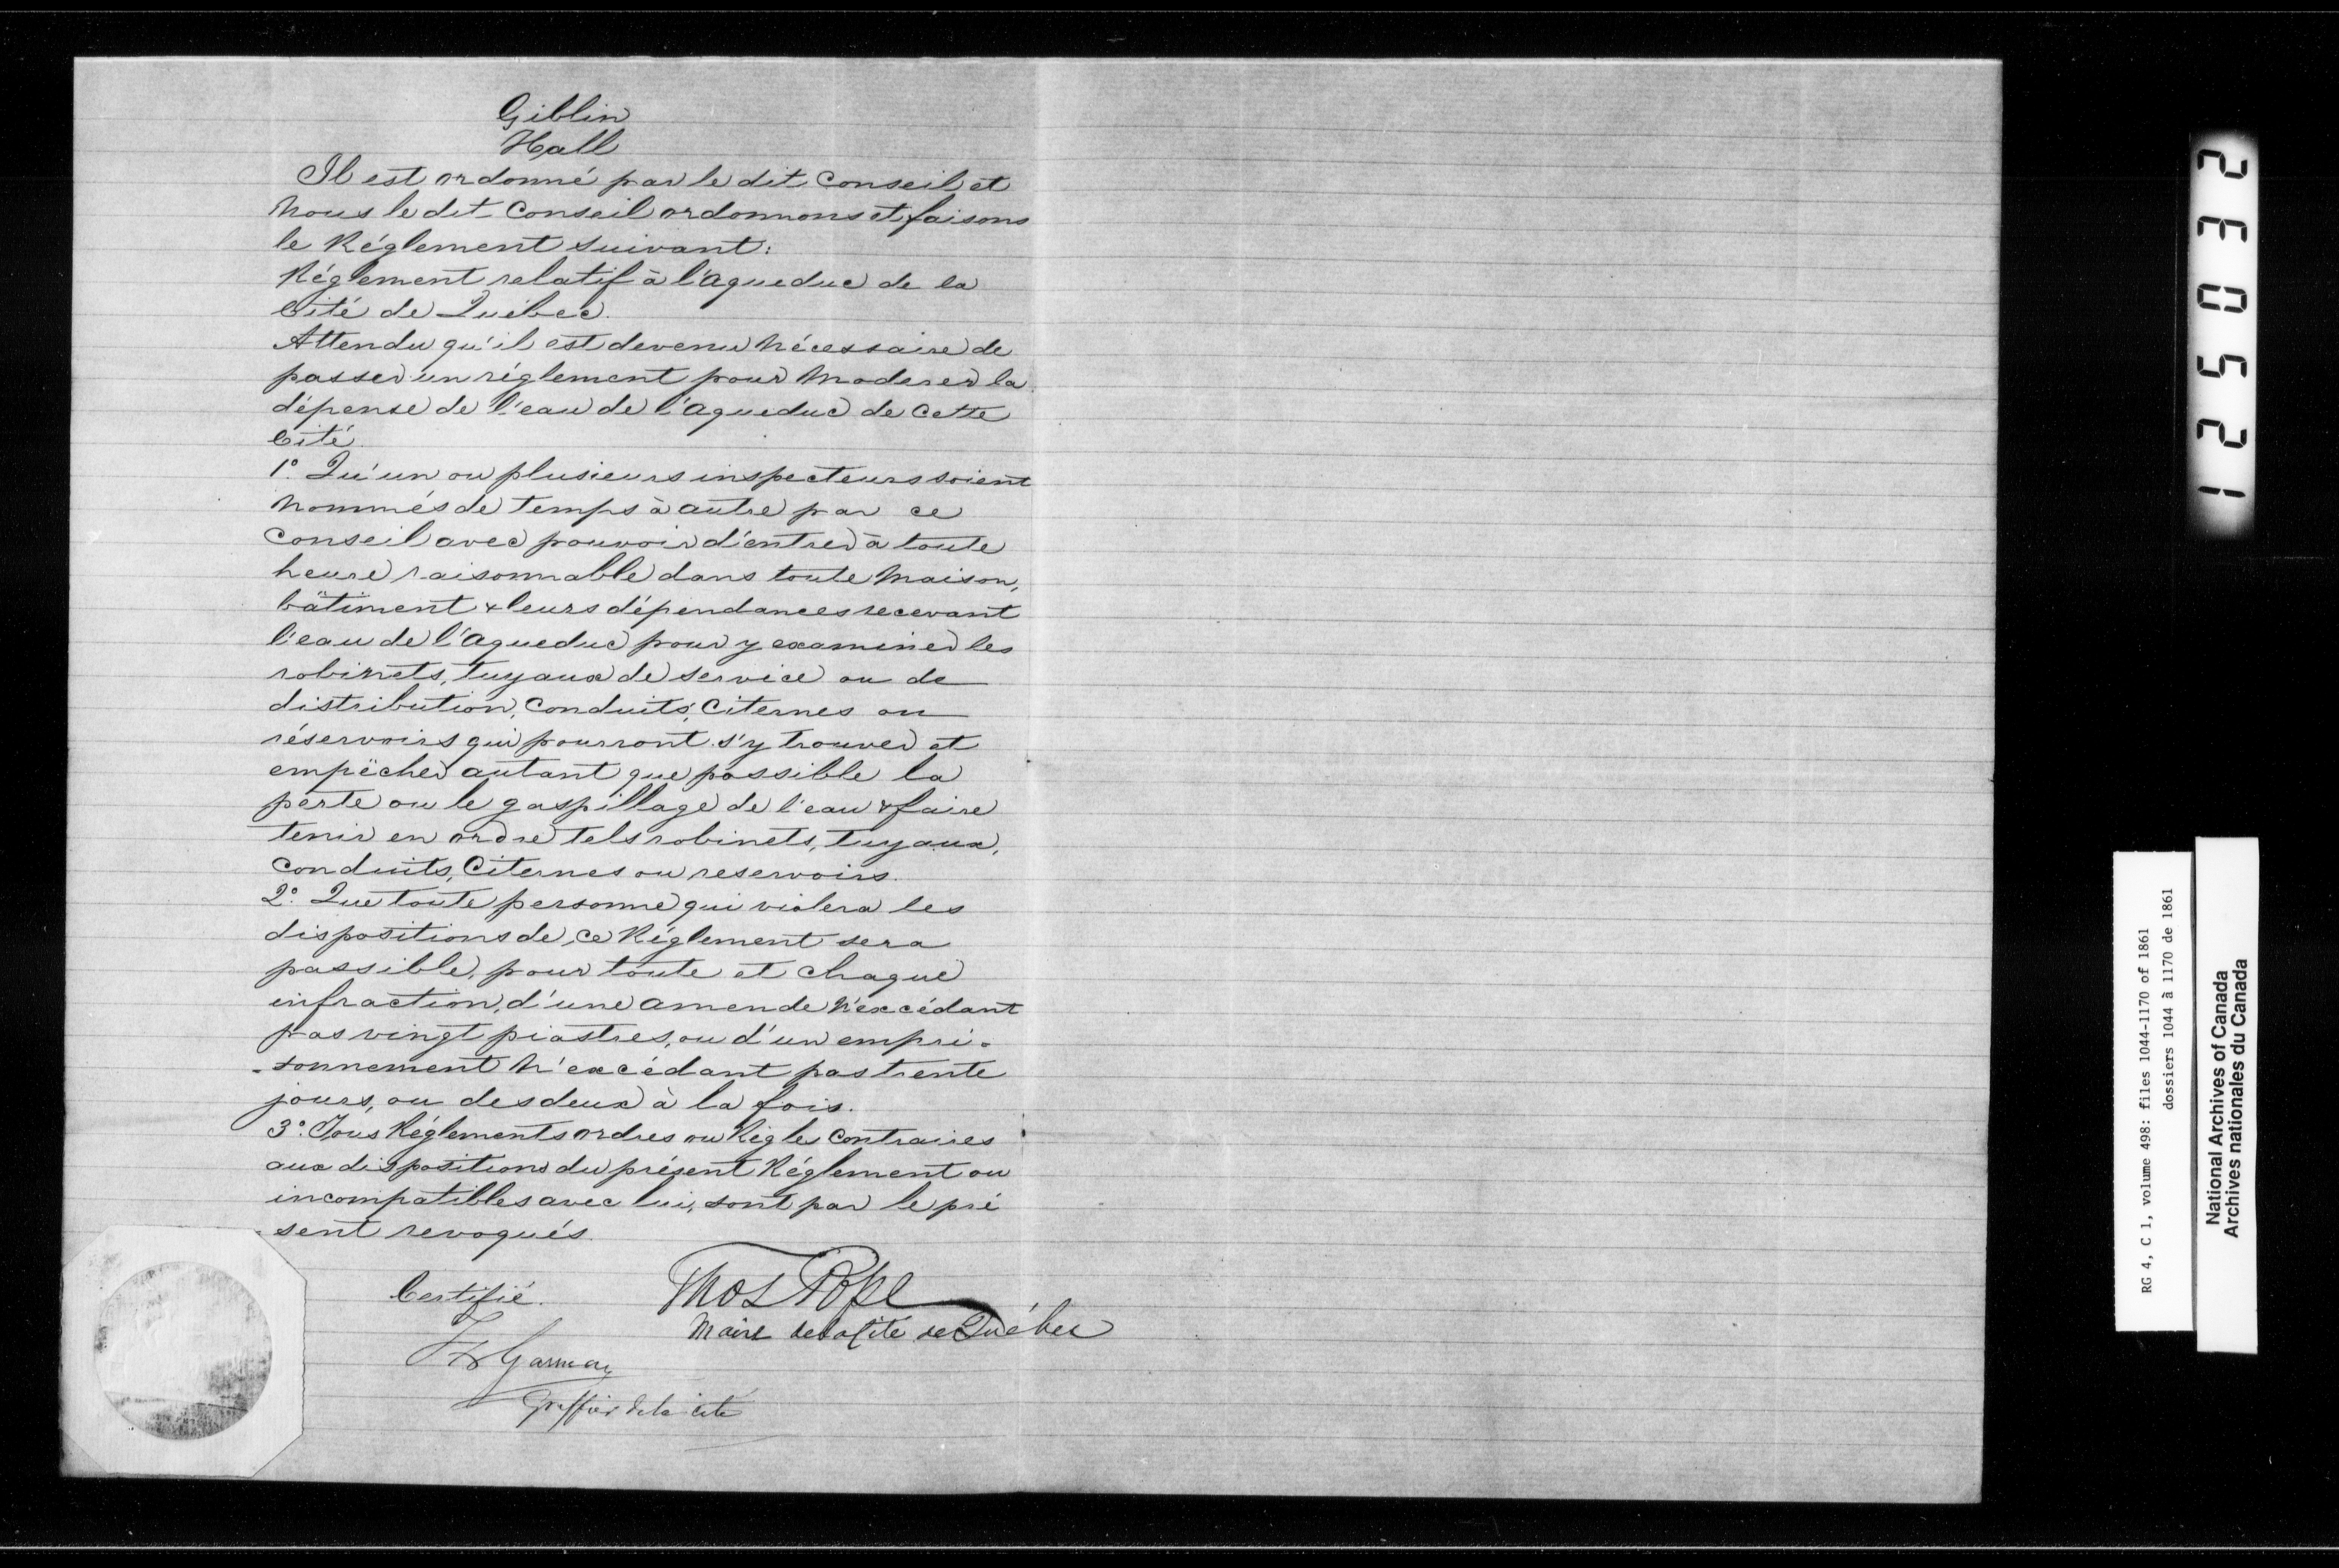 Giblin
Hall
Il est ordonné par le dit Conseil et
Nous le dit Conseil ordonnons et faisons
le Réglement suivant:
Réglement relatif à l'Aqueduc de la
Cité de Québec.
Attendu qu'il est devenu Nécessaire de
passer un réglement pour Moderer la
dépense de l'eau de l'Aqueduc de Cette
Cité.
1° Qu'un ou plusieurs inspecteurs soient
Nommés de temps à autre par ce
Conseil avec pouvoir d'entrer à toute
heure raisonnable dans toute Maison,
bâtiment & leurs dépendances recevant
l'eau de l'Aqueduc pour y examiner les
robinets, tuyaux de service ou de
distribution, Conduits, Citernes ou
réservoirs qui pourront s'y trouver et
empêcher autant que possible la
perte ou le gaspillage de l'eau & faire
tenir en ordre tels robinets, tuyaux,
Conduits, Citernes ou reservoirs.
2° Que toute personne qui violera les
dispositions de ce Réglement sera
passible, pour toute et chaque
infraction, d'une amende N'excédant
pas vingt piastres, ou d'un empri-
-sonnement N'excédant pas trente
jours, ou des deux à la fois.
3° Tous Réglements ordres ou Règles Contraires
aux dispositions du présent Réglement ou
incompatibles avec lui, sont par le pré
-sent revoqués.
Certifié.
Thos Pope
Maire de la Cité de Québec
Garneau
Greffier de la cité
125032
RG 4, C 1, volume 498: files 1044-1170 of 1861
dossiers 1044 à 1170 de 1861
National Archives of Canada
Archives nationales du Canada